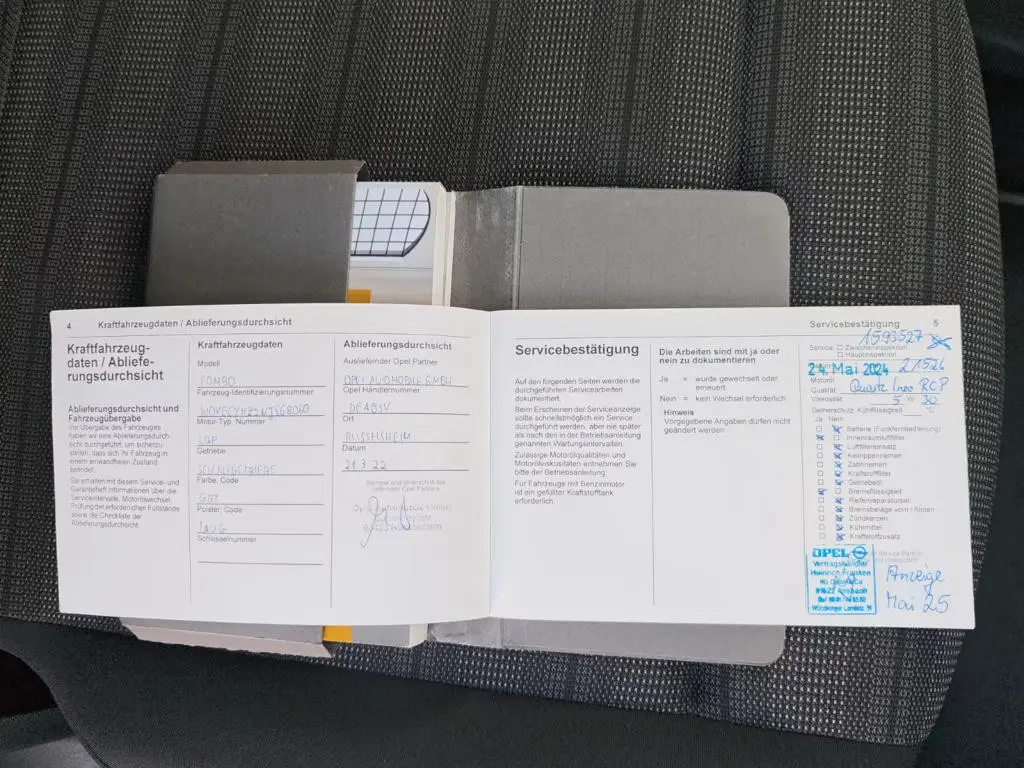 4 Kraftfahrzeugdaten / Ablieferungsdurchsicht
Kraftfahrzeug-
daten / Abliefe-
rungsdurchsicht
Ablieferungsdurchsicht und
Fahrzeugübergabe
Vor Übergabe des Fahrzeuges
haben wir eine Ablieferungsdurch-
sicht durchgeführt, um sicherzu-
stellen, dass sich Ihr Fahrzeug in
einem einwandfreien Zustand
befindet.
Sie erhalten mit diesem Service- und
Garantieheft Informationen über die
Serviceintervalle, Motorölwechsel,
Prüfung der erforderlichen Füllstände
sowie die Checkliste der
Ablieferungsdurchsicht.
Kraftfahrzeugdaten
Modell
COMBO
Fahrzeug-Identifizierungsnummer
Motor-Typ, Nummer
Getriebe
SCHALTGETRIEBE
Farbe, Code
Polster, Code
Schlüsselnummer
Ablieferungsdurchsicht
Ausliefernder Opel Partner
OPEL AUTOMOBILE GMBH
Opel Händlernummer
Ort
RÜSSELSHEIM
Datum
21.3.22
Stempel und Unterschrift des
ausliefernden Opel Partners
Servicebestätigung 5
Servicebestätigung
Auf den folgenden Seiten werden die
durchgeführten Servicearbeiten
dokumentiert.
Beim Erscheinen der Serviceanzeige
sollte schnellstmöglich ein Service
durchgeführt werden, aber nie später
als nach den in der Betriebsanleitung
genannten Wartungsintervallen.
Zulässige Motorölqualitäten und
Motorölviskositäten entnehmen Sie
bitte der Betriebsanleitung.
Für Fahrzeuge mit Benzinmotor
ist ein gefüllter Kraftstofftank
erforderlich.
Die Arbeiten sind mit ja oder
nein zu dokumentieren
Ja = wurde gewechselt oder
erneuert
Nein = kein Wechsel erforderlich
Hinweis
Vorgegebene Angaben dürfen nicht
geändert werden.
1593527
Service: Zwischeninspektion
Hauptinspektion
24. Mai 2024 21526
Motoröl
Qualität: Quartz Ineo RCP
Viskosität: 5 W 30
Gefrierschutz Kühlflüssigkeit: °C
Ja Nein
Batterie (Funkfernbedienung)
Innenraumluftfilter
Luftfiltereinsatz
Keilrippenriemen
Zahnriemen
Kraftstofffilter
Getriebeöl
Bremsflüssigkeit
Reifenreparaturset
Bremsbeläge vorn / hinten
Zündkerzen
Kühlmittel
Kraftstoffzusatz
OPEL
Vertragshändler
Heinrich Franken
Ansbach
Würzburger Landstr.
Anzeige
Mai 25